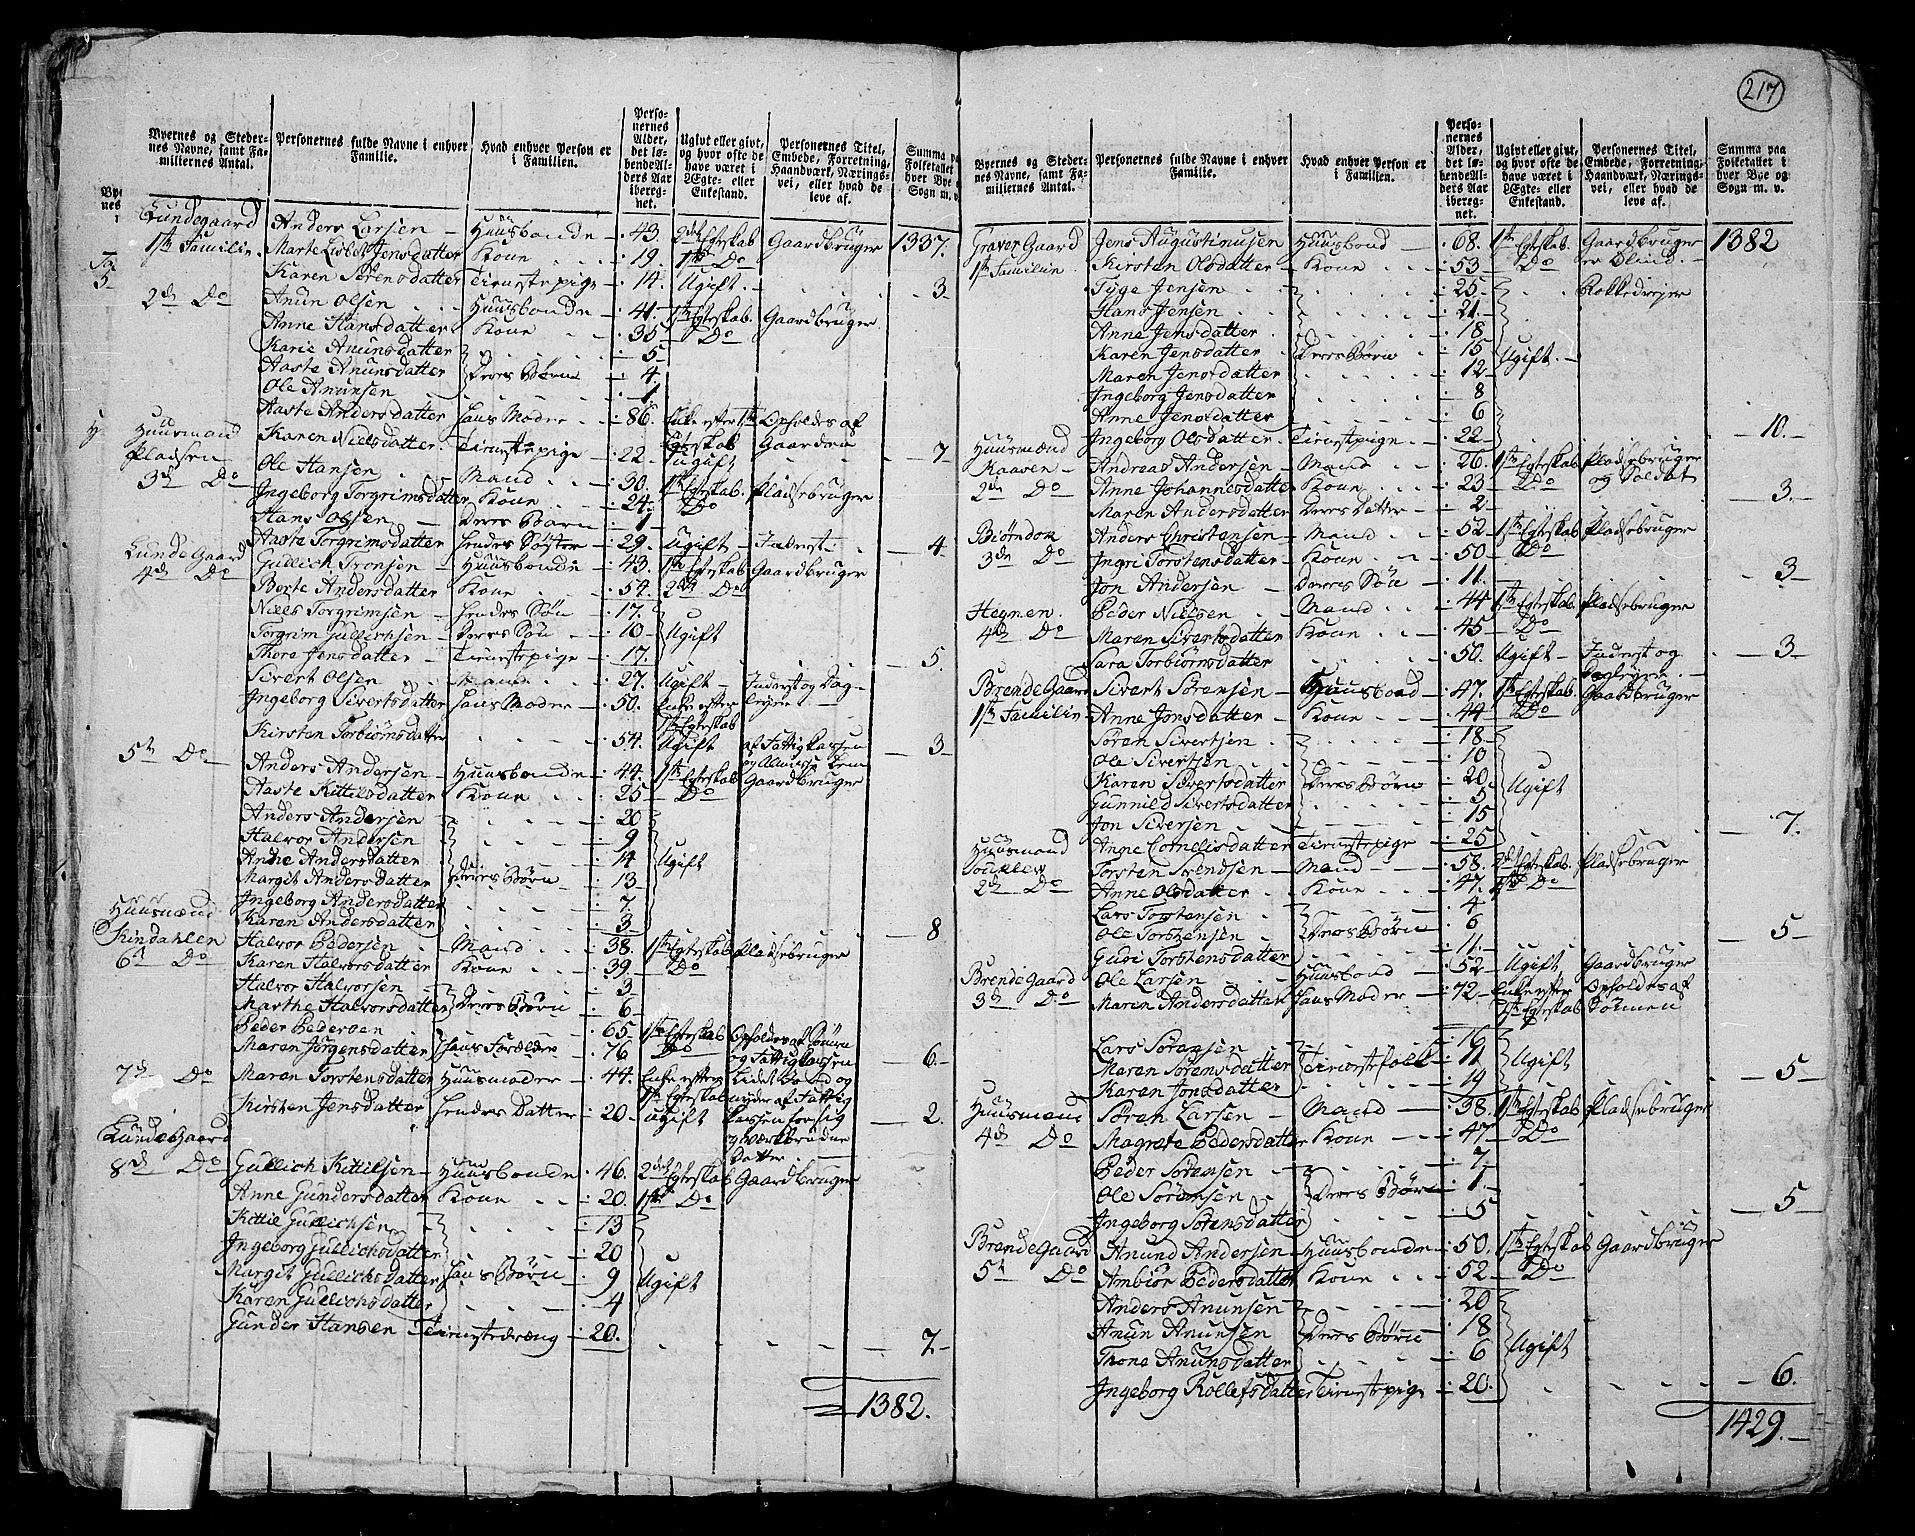 217
Byernes og Stedernes Navne, samt Familiernes Antal.
Personernes fulde Navne i enhver Familie.
Hvad enhver Person er i Familien.
Personernes Alder, det løbende Alders Aar iberegnet.
Ugivt eller givt, og hvor ofte de have været i Ægte- eller Enkestand.
Personernes Titel, Embede, Forretning, Haandværk, Næringsvei, eller hvad de leve af.
Summa paa Folketallet i hver Bye og Sogn m. v.
Lundegaard Anders Larsen Huusbonde 43. 2det Egteskab Gaardbruger 1337.
1te Familie Marte Lisbet Jensdatter Kone 19. 1te Do
Karen Sørensdatter Tienstepige 14. Ugift 3
2de Do Anun Olsen Huusbonde 41. 1te Egteskab Gaardbruger
Anne Hansdatter Kone 35 Do
Karie Anunsdatter 5
Aaste Anunsdatter Deres Børn 4.
Ole Anunsen 1
Aaste Andersdatter Hans Moder 86. Enke efter 1te Egteskab Opholdes af Gaarden
Huusmand Karen Nielsdatter Tienstepige 22. Ugift 7
Pladsen Ole Hansen Mand 30. 1te Egteskab Pladsebruger
3de Do Ingeborg Torgrimsdatter Kone 24. Do
Hans Olsen Deres Barn 1
Aaste Torgrimsdatter Hendes Søster 29. Ugift Inderst 4
Lunde Gaard Gullich Tronsen Huusbonde 43. 1te Egteskab Gaardbruger
4de Do Berte Andersdatter Kone 54. 2det Do
Niels Torgrimsen Hendes Søn 17.
Torgrim Gullichsen Deres Søn 10 Ugift
Thore Jensdatter Tienstepige 17. 5.
Sivert Olsen Mand 27. Ugift Inderst og Dagleyer
Ingeborg Sivertsdatter Hans Moder 50. Enke efter 1te Egteskab
Kirsten Torbiørnsdatter 54. Ugift af Fattigkassen og Almisse 3
5te Do Anders Andersen Huusbonde 44. 1te Egteskab Gaardbruger
Aaste Kittilsdatter Kone 25 Do
Anders Andersen 20
Halvor Andersen 9
Anne Andersdatter 14 Ugift
Margit Andersdatter Deres Børn 13
Ingeborg Andersdatter 7
Huusmænd Karen Andersdatter 3 8
Halvor Pedersen Mand 38. 1te Egteskab Pladsebruger
6te Do Karen Halvorsdatter Kone 39. Do
Halvor Halvorsen 3
Marthe Halvorsdatter Deres Børn 6
Peder Pedersen 65 1te Egteskab Opholdes af Sønnen
Maren Jørgensdatter Hans Forældre 76 Do og Fattigkassen 6.
7de Do Maren Torstensdatter Huusmoder 44. Enke efter 1te Egteskab
Kirsten Jensdatter Hendes Datter 20. Ugift 2.
Lunde Gaard
8de Do Gullich Kittilsen Huusbonde 46. 2det Egteskab Gaardbruger
Anne Gundersdatter Kone 20. 1te Do
Kittil Gullichsen 13
Ingeborg Gullichsdatter 20
Margit Gullichsdatter Hans Børn 9 Ugift
Karen Gullichsdatter 4
Gunder Hansen Tienstedreng 20. 7
1382.
Byernes og Stedernes Navne, samt Familiernes Antal.
Personernes fulde Navne i enhver Familie.
Hvad enhver Person er i Familien.
Personernes Alder, det løbende Alders Aar iberegnet.
Ugivt eller givt, og hvor ofte de have været i Ægte- eller Enkestand.
Personernes Titel, Embede, Forretning, Haandværk, Næringsvei, eller hvad de leve af.
Summa paa Folketallet i hver Bye og Sogn m. v.
Graver Gaard Jens Augustinusen Huusbond 68. 1te Egteskab Gaardbruger 1382
1te Familie Kirsten Olsdatter Kone 53 Do er Blind.
Tyge Jensen 25 Rokkedreyer
Hans Jensen 21
Anne Jensdatter 18
Karen Jensdatter Deres Børn 15 Ugift
Maren Jensdatter 12
Ingeborg Jensdatter 8
Anne Jensdatter 6
Huusmænd Ingeborg Olsdatter Tienstepige 22 10.
Kaasen Andreas Andersen Mand 26. 1te Egteskab Pladsebruger
2de Do Anne Johannesdatter Kone 23 Do og Soldat
Maren Andersdatter Deres Datter 2 3.
Biørndom Anders Christensen Mand 52 1te Egteskab Pladsebruger
3de Do Ingri Torstensdatter Kone 50 Do
Jon Andersen Deres Søn 11. 3
Heynen Peder Nielsen Mand 44 1te Egteskab Pladsebruger
4de Do Maren Sivertsdatter Kone 45 Do
Sara Torbiørnsdatter 50. Ugift Inderst og Dagleyer 3
Brende Gaard Sivert Sørensen Huusbond 47. 1te Egteskab Gaardbruger
1te Familie Anne Jonsdatter Kone 44 Do
Søren Sivertsen 18
Ole Sivertsen 10
Karen Sivertsdatter Deres Børn 20 Ugift
Gunnild Sivertsdatter 5
Jon Siversen 15
Huusmand Anne Cornelisdatter Tienstepige 25 7.
Torsten Svendsen Mand 58. 2det Egteskab Pladsebruger
2de Do Anne Olsdatter Kone 47. 1te Do
Lars Torstensen 4
Ole Torstensen Deres Børn 6 5
Gudi Torstensdatter 11.
Brende Gaard Ole Larsen Huusbond 52 Ugift Gaardbruger
3de Do Maren Andersdatter Hans Moder 72 Enke efter 1te Egteskab Opholdes af Sønnen
Lars Sørensen 16
Maren Sørensdatter Tienstefolk 11 Ugift
Karen Jonsdatter 19 5
Huusmand Søren Larsen Mand 38. 1te Egteskab Pladsebruger
4de Do Magrete Pedersdatter Kone 47 Do
Peder Sørensen 7
Ole Sørensen Deres Børn 1.
Ingeborg Sørensdatter 5 5
Brende Gaard Anund Andersen Huusbonde 50. 1te Egteskab Gaardbruger
5te Do Ambiør Pedersdatter Kone 52 Do
Anders Anunsen 20
Anun Anunsen Deres Børn 18 Ugift
Thone Anunsdatter 6
Ingeborg Rollefsdatter Tienstepige 20. 6.
1429.